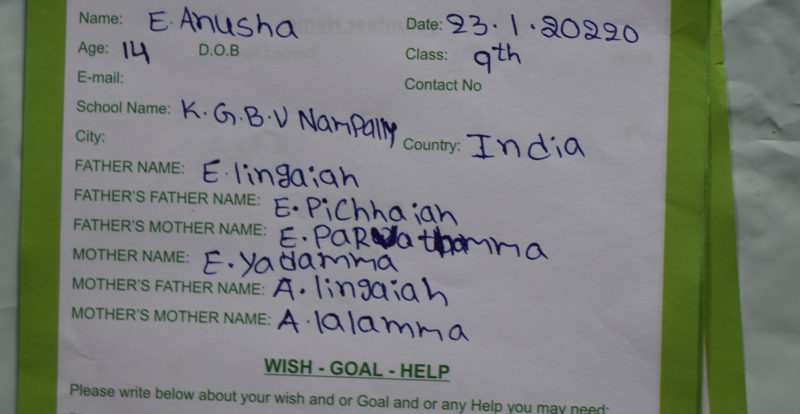 Name: E. Anusha Date: 23.1.20220
Age: 14 D.O.B Class: 9th
E-mail: Contact No
School Name: K.G.B.V Nampally
City: Country: India
FATHER NAME: E. lingaiah
FATHER'S FATHER NAME: E. Pichhaiah
FATHER'S MOTHER NAME: E. PARVathamma
MOTHER NAME: E. yadamma
MOTHER'S FATHER NAME: A. lingaiah
MOTHER'S MOTHER NAME: A. lalamma
WISH - GOAL - HELP
Please write below about your wish and or Goal and or any Help you may need: